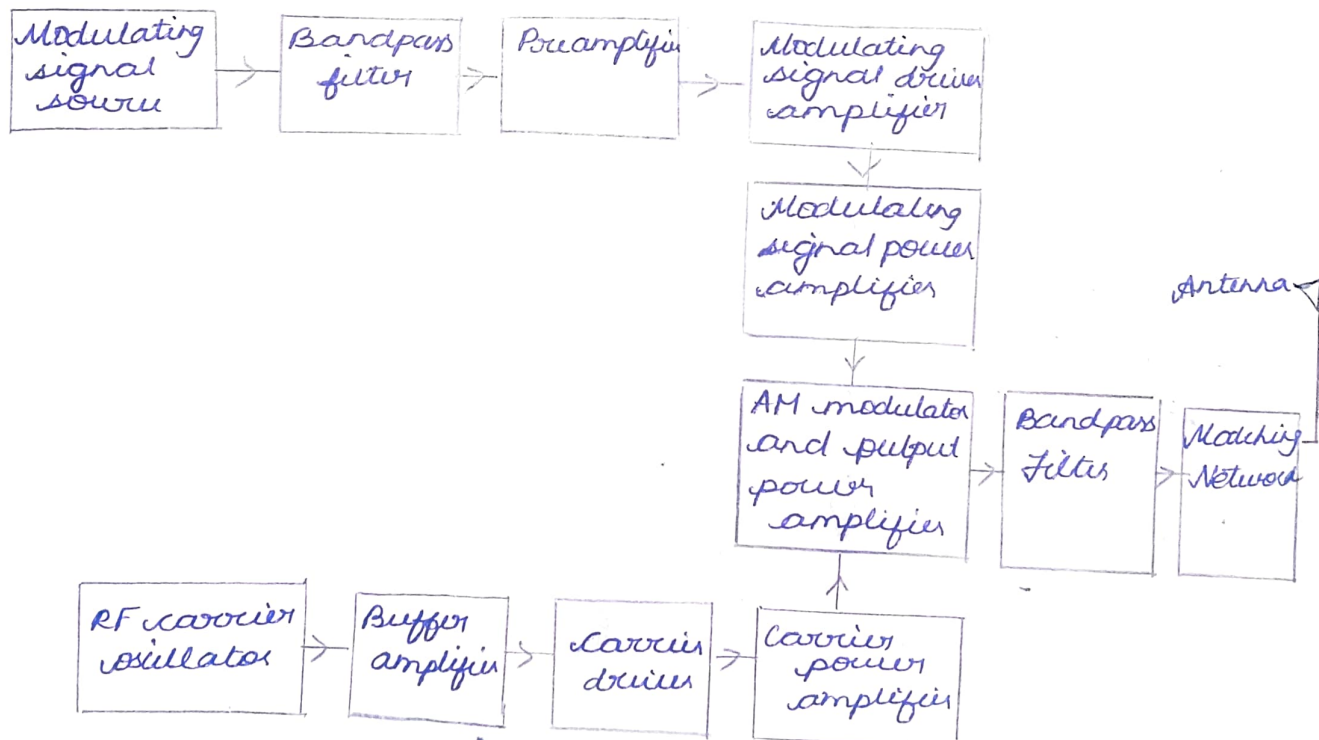 Modulating
signal
source
Bandpass
filter
Preamplifier
Modulating
signal driver
amplifier
Modulating
signal power
amplifier
Antenna
AM modulator
and output
power
amplifier
Bandpass
Filter
Matching
Network
RF carrier
oscillator
Buffer
amplifier
Carrier
driver
Carrier
power
amplifier